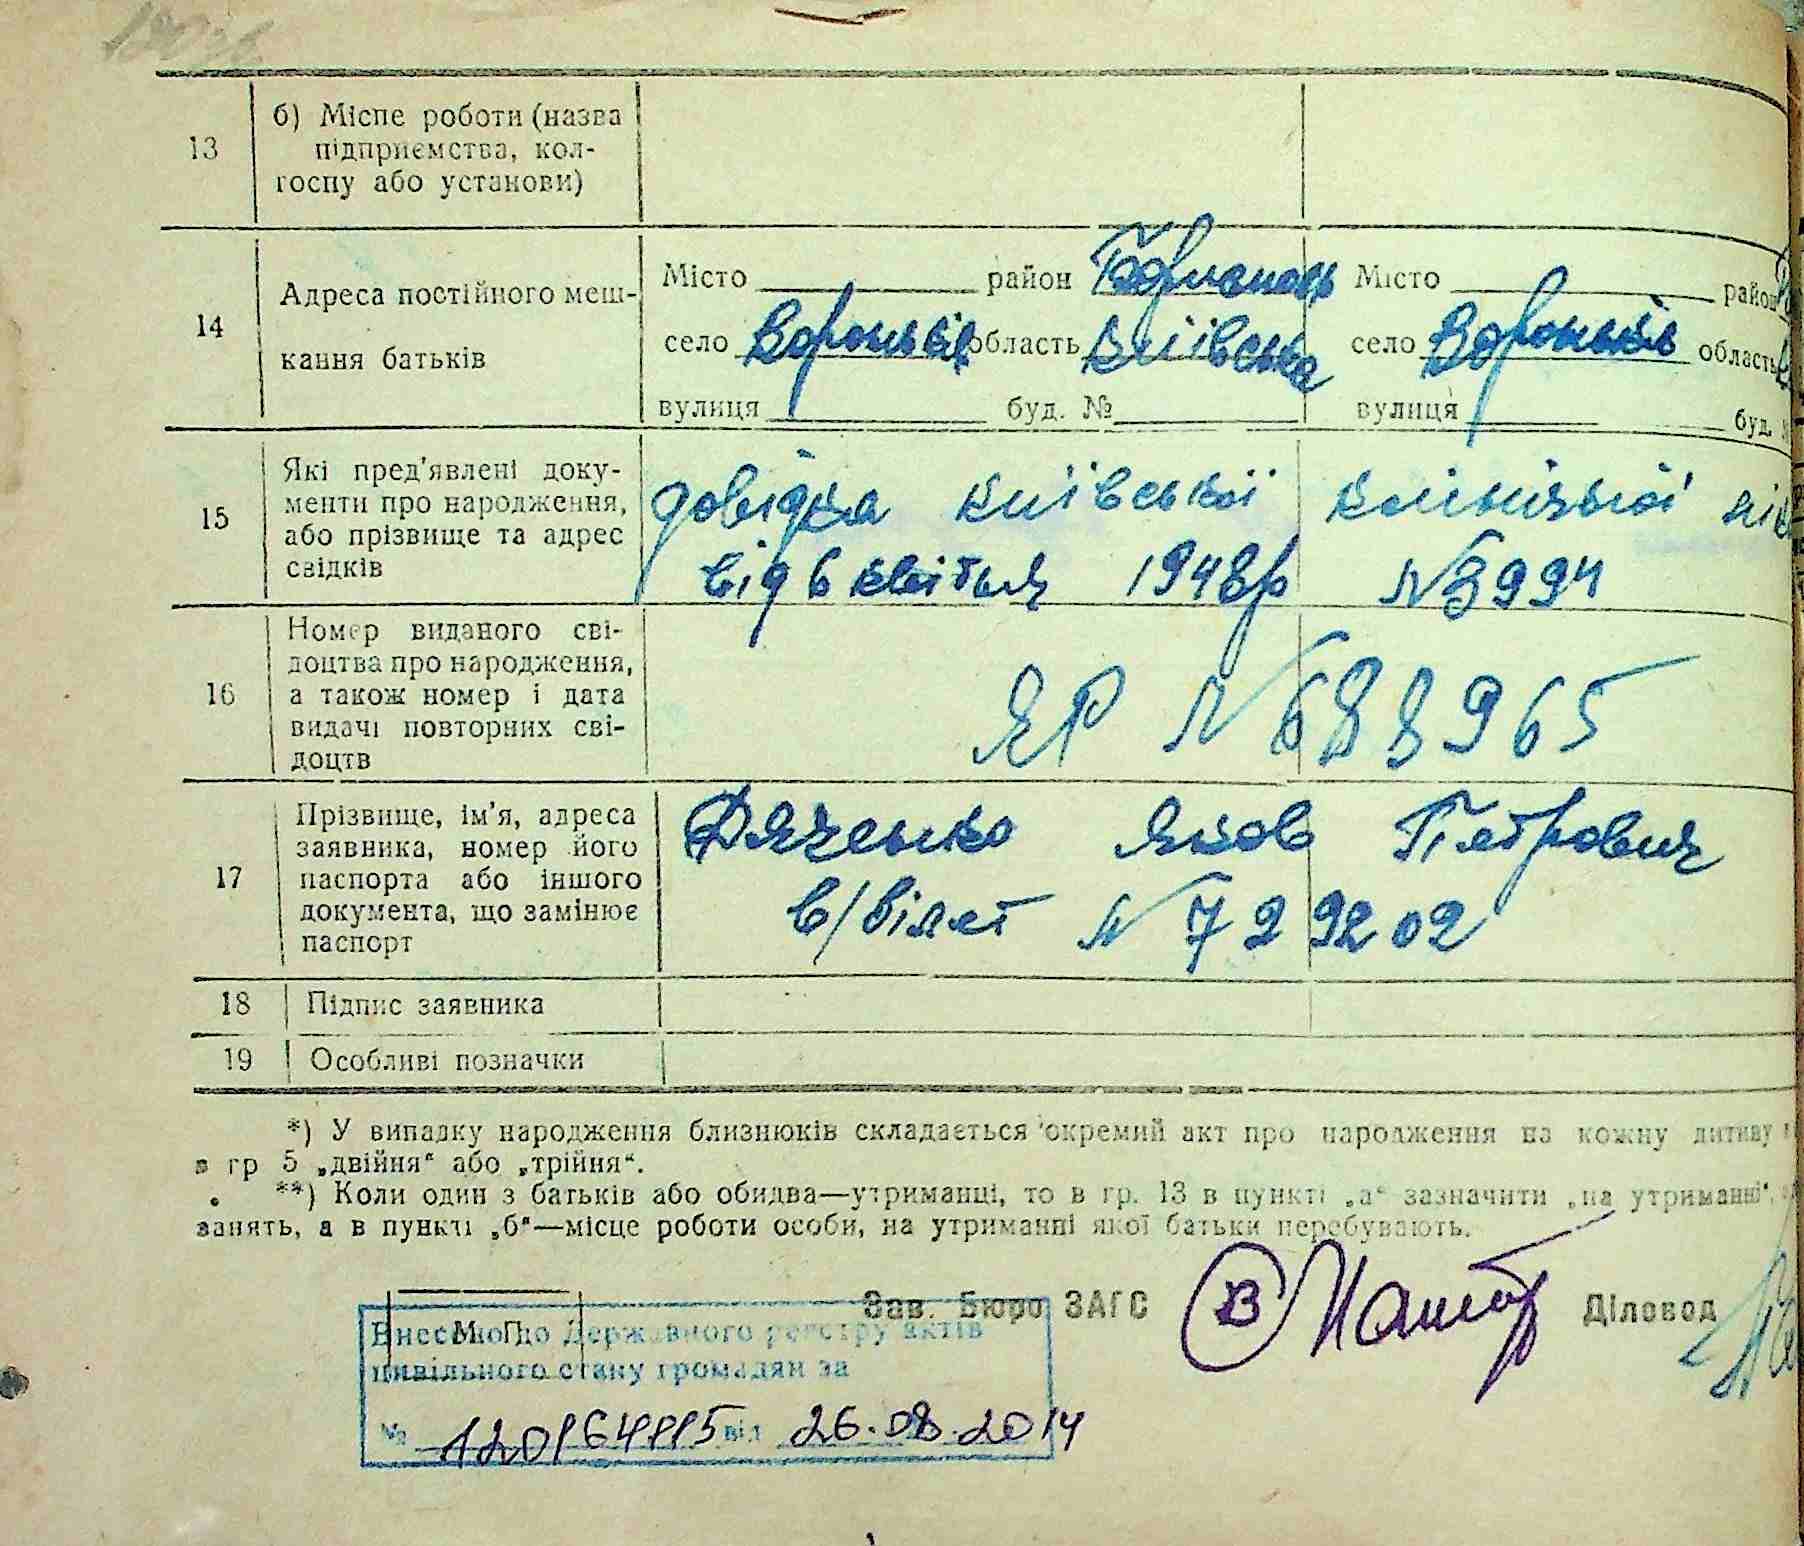 13 б) Місце роботи (назва
підприємства, кол-
госпу або установи)
14 Адреса постійного меш-
кання батьків
Місто район Бориспольс Місто район
село Вороньків область Київська село Вороньків область
вулиця буд. № вулиця буд.
15 Які пред'явлені доку-
менти про народження,
або прізвище та адрес
свідків
довідка київської клінічної
від 6 квітня 1948р №3994
16 Номер виданого сві-
доцтва про народження,
а також номер і дата
видачі повторних сві-
доцтв
ЯР №688965
17 Прізвище, ім'я, адреса
заявника, номер його
паспорта або іншого
документа, що замінює
паспорт
Дяченко Яков Петрович
в/білет №7292202
18 Підпис заявника
19 Особливі позначки
*) У випадку народження близнюків складається окремий акт про народження на кожну дитину
в гр 5 „двійня“ або „трійня“.
**) Коли один з батьків або обидва—утриманці, то в гр. 13 в пункті „а“ зазначити „на утриманні“,
занять, а в пункті „б“—місце роботи особи, на утриманні якої батьки перебувають.
Зав. Бюро ЗАГС Діловод
М. П.
Внесено до Державного реєстру актів
цивільного стану громадян за
№ 120164115 від 26.08.2014